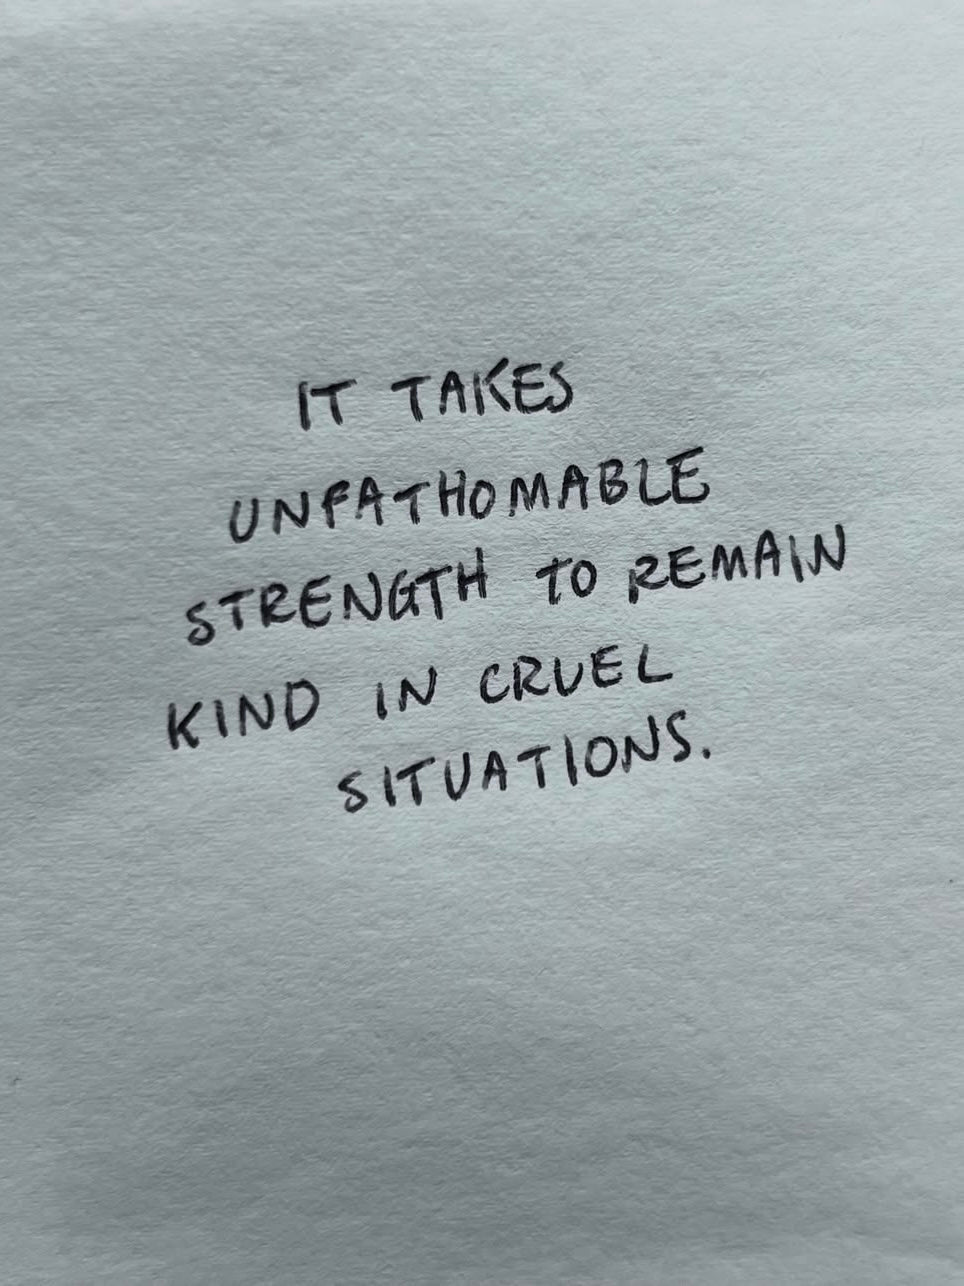 IT TAKES
UNFATHOMABLE
STRENGTH TO REMAIN
KIND IN CRUEL
SITUATIONS.